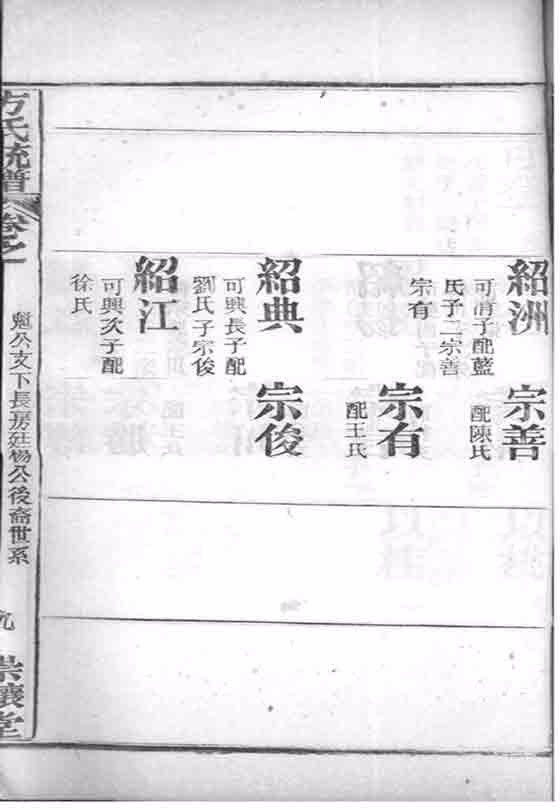 紹洲
可清子配藍
氏子二宗善
宗有
宗善
配陳氏
宗有
配王氏
紹典
可興長子配
劉氏子宗俊
宗俊
紹江
可興次子配
徐氏
方氏統譜
卷之一
魁公支下長房廷楊公後裔世系
九
崇讓堂